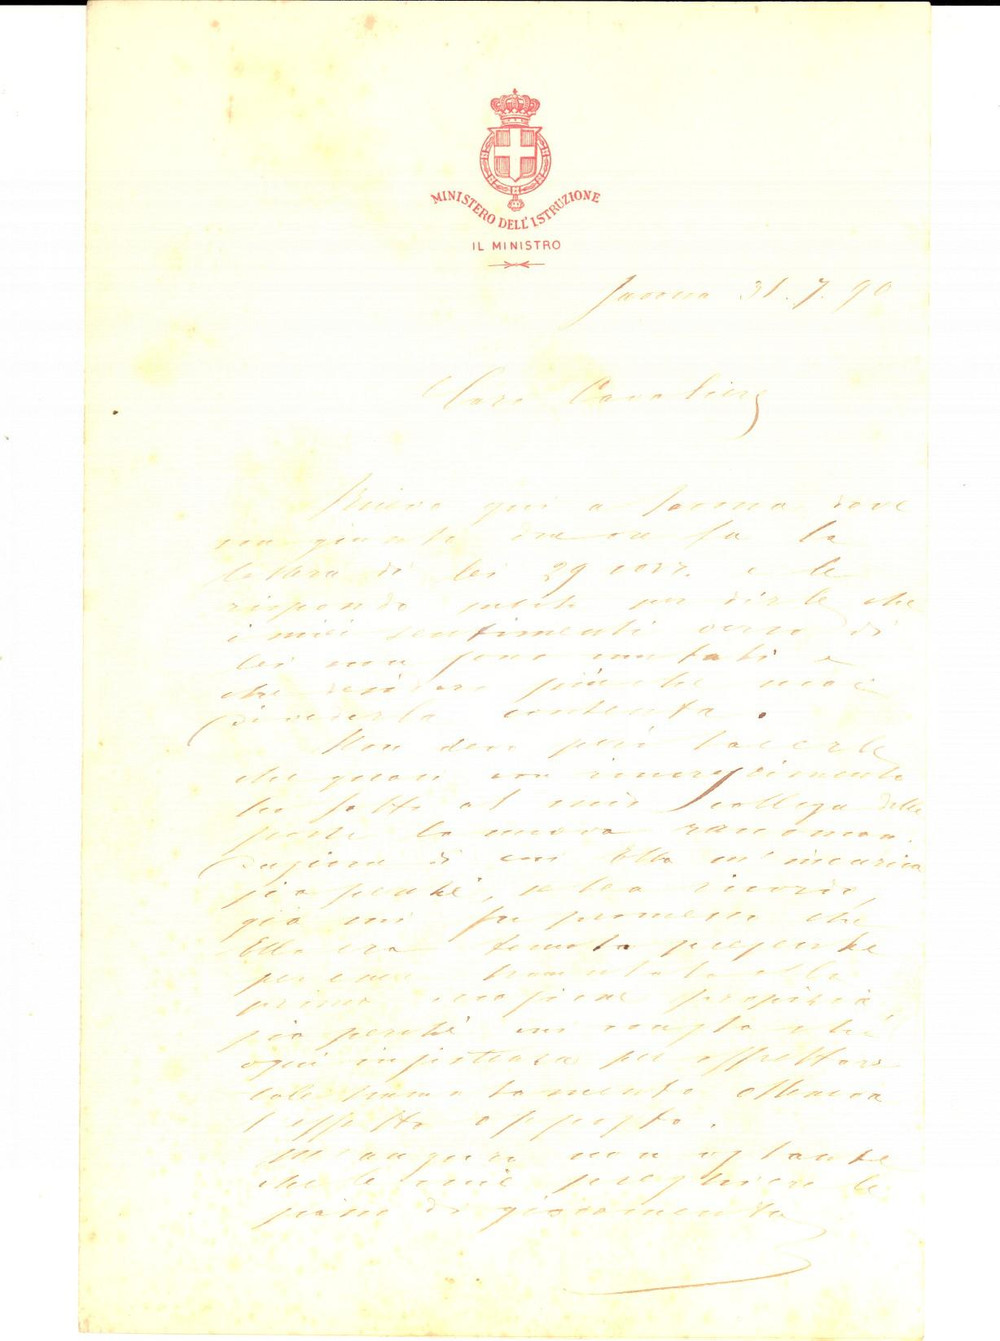 MINISTERO DELL'ISTRUZIONE
IL MINISTRO
Savona 31. 7. 90
Caro Cavaliere
Ricevo qui a Savona dove
son giunto ora la
lettera di lei 29 corr. e le
rispondo subito per dirle che
i miei sentimenti verso di
lei non sono mutati e
che desidero di
saperla contenta.
Non devo però tacerle
che quasi con rincrescimento
ho fatto al mio collega delle
poste la nuova raccoman
dazione di cui Ella m'incarica
sia perché, se ben ricordo,
già mi fu promesso che
Ella era tenuta presente
per essere tramutata alla
prima occasione propizia,
sia perché
ogni insistenza per affrettare
tale tramutamento abbia
l'effetto opposto.
M'auguro non ostante
che le mie preghiere le
siano di giovamento